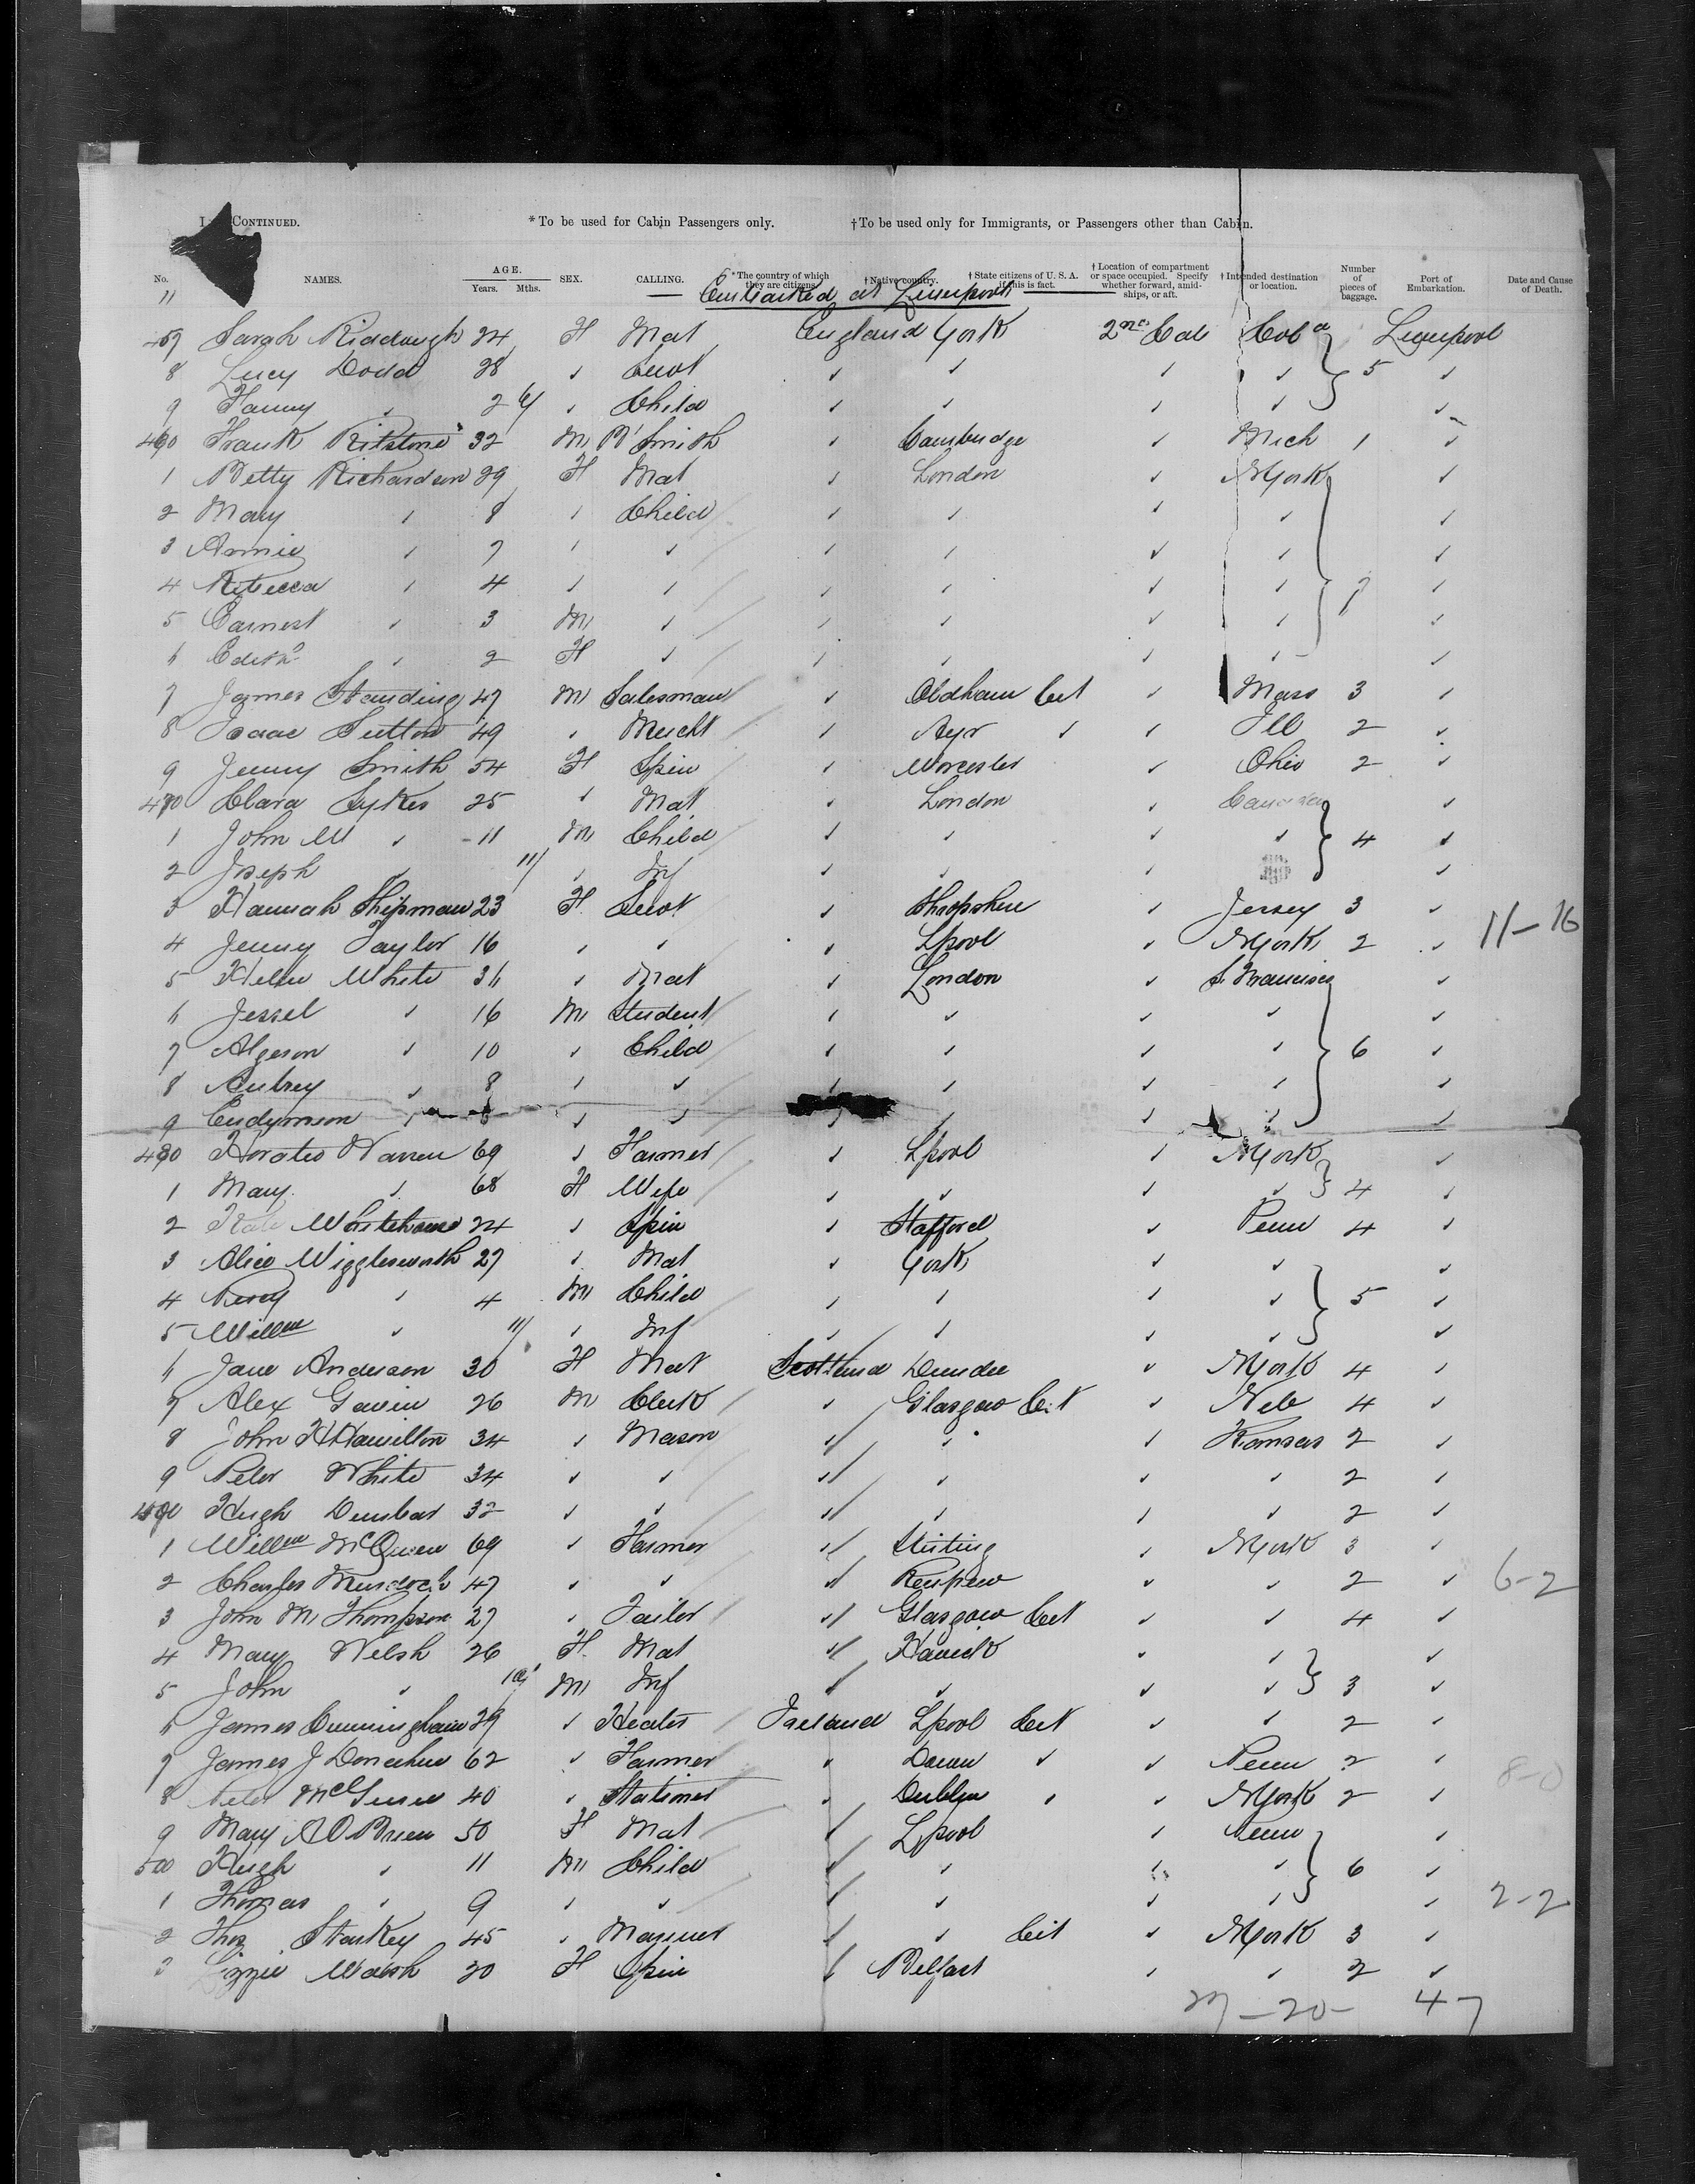 CONTINUED. *To be used for Cabin Passengers only. †To be used only for Immigrants, or Passengers other than Cabin.
No. NAMES. AGE. Years. Mths. SEX. CALLING. *The country of which they are citizens. †Native country. †State citizens of U. S. A. if this is fact. †Location of compartment or space occupied. Specify whether forward, amidships, or aft. †Intended destination or location. Number of pieces of baggage. Port of Embarkation. Date and Cause of Death.
11 Embarked at Liverpool
457 Sarah Riddough 24 F Mat England York 2nd Cab Col a Liverpool
8 Lucy Dodd 28 ✓ Servt ✓ ✓ ✓ ✓ 5 ✓
9 Fanny ✓ 2 ✓ Child ✓ ✓ ✓ ✓ ✓
460 Frank Kitstone 32 M B'Smith ✓ Cambridge ✓ Mich 1 ✓
1 Betty Richardson 29 F Mat ✓ London ✓ NYork ✓
2 Mary ✓ 8 ✓ Child ✓ ✓ ✓ ✓ ✓
3 Annie ✓ 7 ✓ ✓ ✓ ✓ ✓ ✓ ✓
4 Rebecca ✓ 4 ✓ ✓ ✓ ✓ ✓ ✓ ✓
5 Earnest ✓ 3 M ✓ ✓ ✓ ✓ ✓ ✓
6 Edith ✓ 2 F ✓ ✓ ✓ ✓ ✓ ✓
7 James Standing 47 M Salesman ✓ Oldham Cit ✓ Mass 3 ✓
8 Isaac Sutton 49 ✓ Mercht ✓ Ayr ✓ ✓ Ill 2 ✓
9 Jenny Smith 54 F Spin ✓ Worcester ✓ Ohio 2 ✓
470 Clara Sykes 25 ✓ Mat ✓ London ✓ Canada ✓
1 John W ✓ 11 M Child ✓ ✓ ✓ ✓ 4 ✓
2 Joseph ✓ 11/ ✓ Inf ✓ ✓ ✓ ✓
3 Hannah Shipman 23 F Servt ✓ Shropshire ✓ Jersey 3 ✓ 11-16
4 Jenny Taylor 16 ✓ ✓ ✓ Lpool ✓ NYork 2 ✓
5 Helen White 36 ✓ Mat ✓ London ✓ S. Francisco ✓
6 Jessel ✓ 16 M Student ✓ ✓ ✓ ✓ ✓
7 Algeson ✓ 10 ✓ Child ✓ ✓ ✓ ✓ 6 ✓
8 Aubrey ✓ 8 ✓ ✓ ✓ ✓ ✓ ✓ ✓
9 Endymion ✓ ✓ ✓ ✓ ✓ ✓ ✓ ✓
480 Horatio Warren 69 ✓ Farmer ✓ Lpool ✓ NYork ✓
1 Mary ✓ 68 F Wife ✓ ✓ ✓ ✓ 4 ✓
2 Kate Whitehouse 24 ✓ Spin ✓ Stafford ✓ Penn 4 ✓
3 Alice Wigglesworth 27 ✓ Mat ✓ York ✓ ✓ ✓
4 Percy ✓ 4 M Child ✓ ✓ ✓ ✓ 5 ✓
5 Willm ✓ 11/ ✓ Inf ✓ ✓ ✓ ✓ ✓
6 Jane Anderson 30 F Mat Scotland Dundee ✓ NYork 4 ✓
7 Alex Gavin 26 M Clerk ✓ Glasgow Cit ✓ Neb 4 ✓
8 John H Hamilton 34 ✓ Mason ✓ ✓ ✓ Kansas 2 ✓
9 Peter White 34 ✓ ✓ ✓ ✓ ✓ ✓ 2 ✓
490 Hugh Dunbar 32 ✓ ✓ ✓ ✓ ✓ ✓ 2 ✓
1 Willm McQueen 69 ✓ Farmer ✓ Stirling ✓ NYork 3 ✓
2 Charles Murdoch 47 ✓ ✓ ✓ Renfrew ✓ ✓ 2 ✓ 6-2
3 John M Thompson 27 ✓ Tailor ✓ Glasgow Cit ✓ ✓ 4 ✓
4 Mary Welsh 26 F Mat ✓ Hawick ✓ ✓ ✓
5 John ✓ 10/ M Inf ✓ ✓ ✓ ✓ 3 ✓
6 James Cunningham 29 ✓ Heater Ireland Lpool Cit ✓ ✓ 2 ✓
7 James J Donachue 62 ✓ Farmer ✓ Down ✓ ✓ Penn 2 ✓
8 Peter 40 ✓ Stationer ✓ Dublin ✓ ✓ NYork 2 ✓ 8-0
9 Mary A O'Brien 50 F Mat ✓ Lpool ✓ Penn ✓
500 Hugh ✓ 11 M Child ✓ ✓ ✓ ✓ 6 ✓
1 Thomas ✓ 9 ✓ ✓ ✓ ✓ ✓ ✓ ✓ 2-2
2 Thos Starkey 45 ✓ Mariner ✓ ✓ Cit ✓ NYork 3 ✓
3 Lizzie Walsh 20 F Spin ✓ Belfast ✓ ✓ 2 ✓
27-20- 47